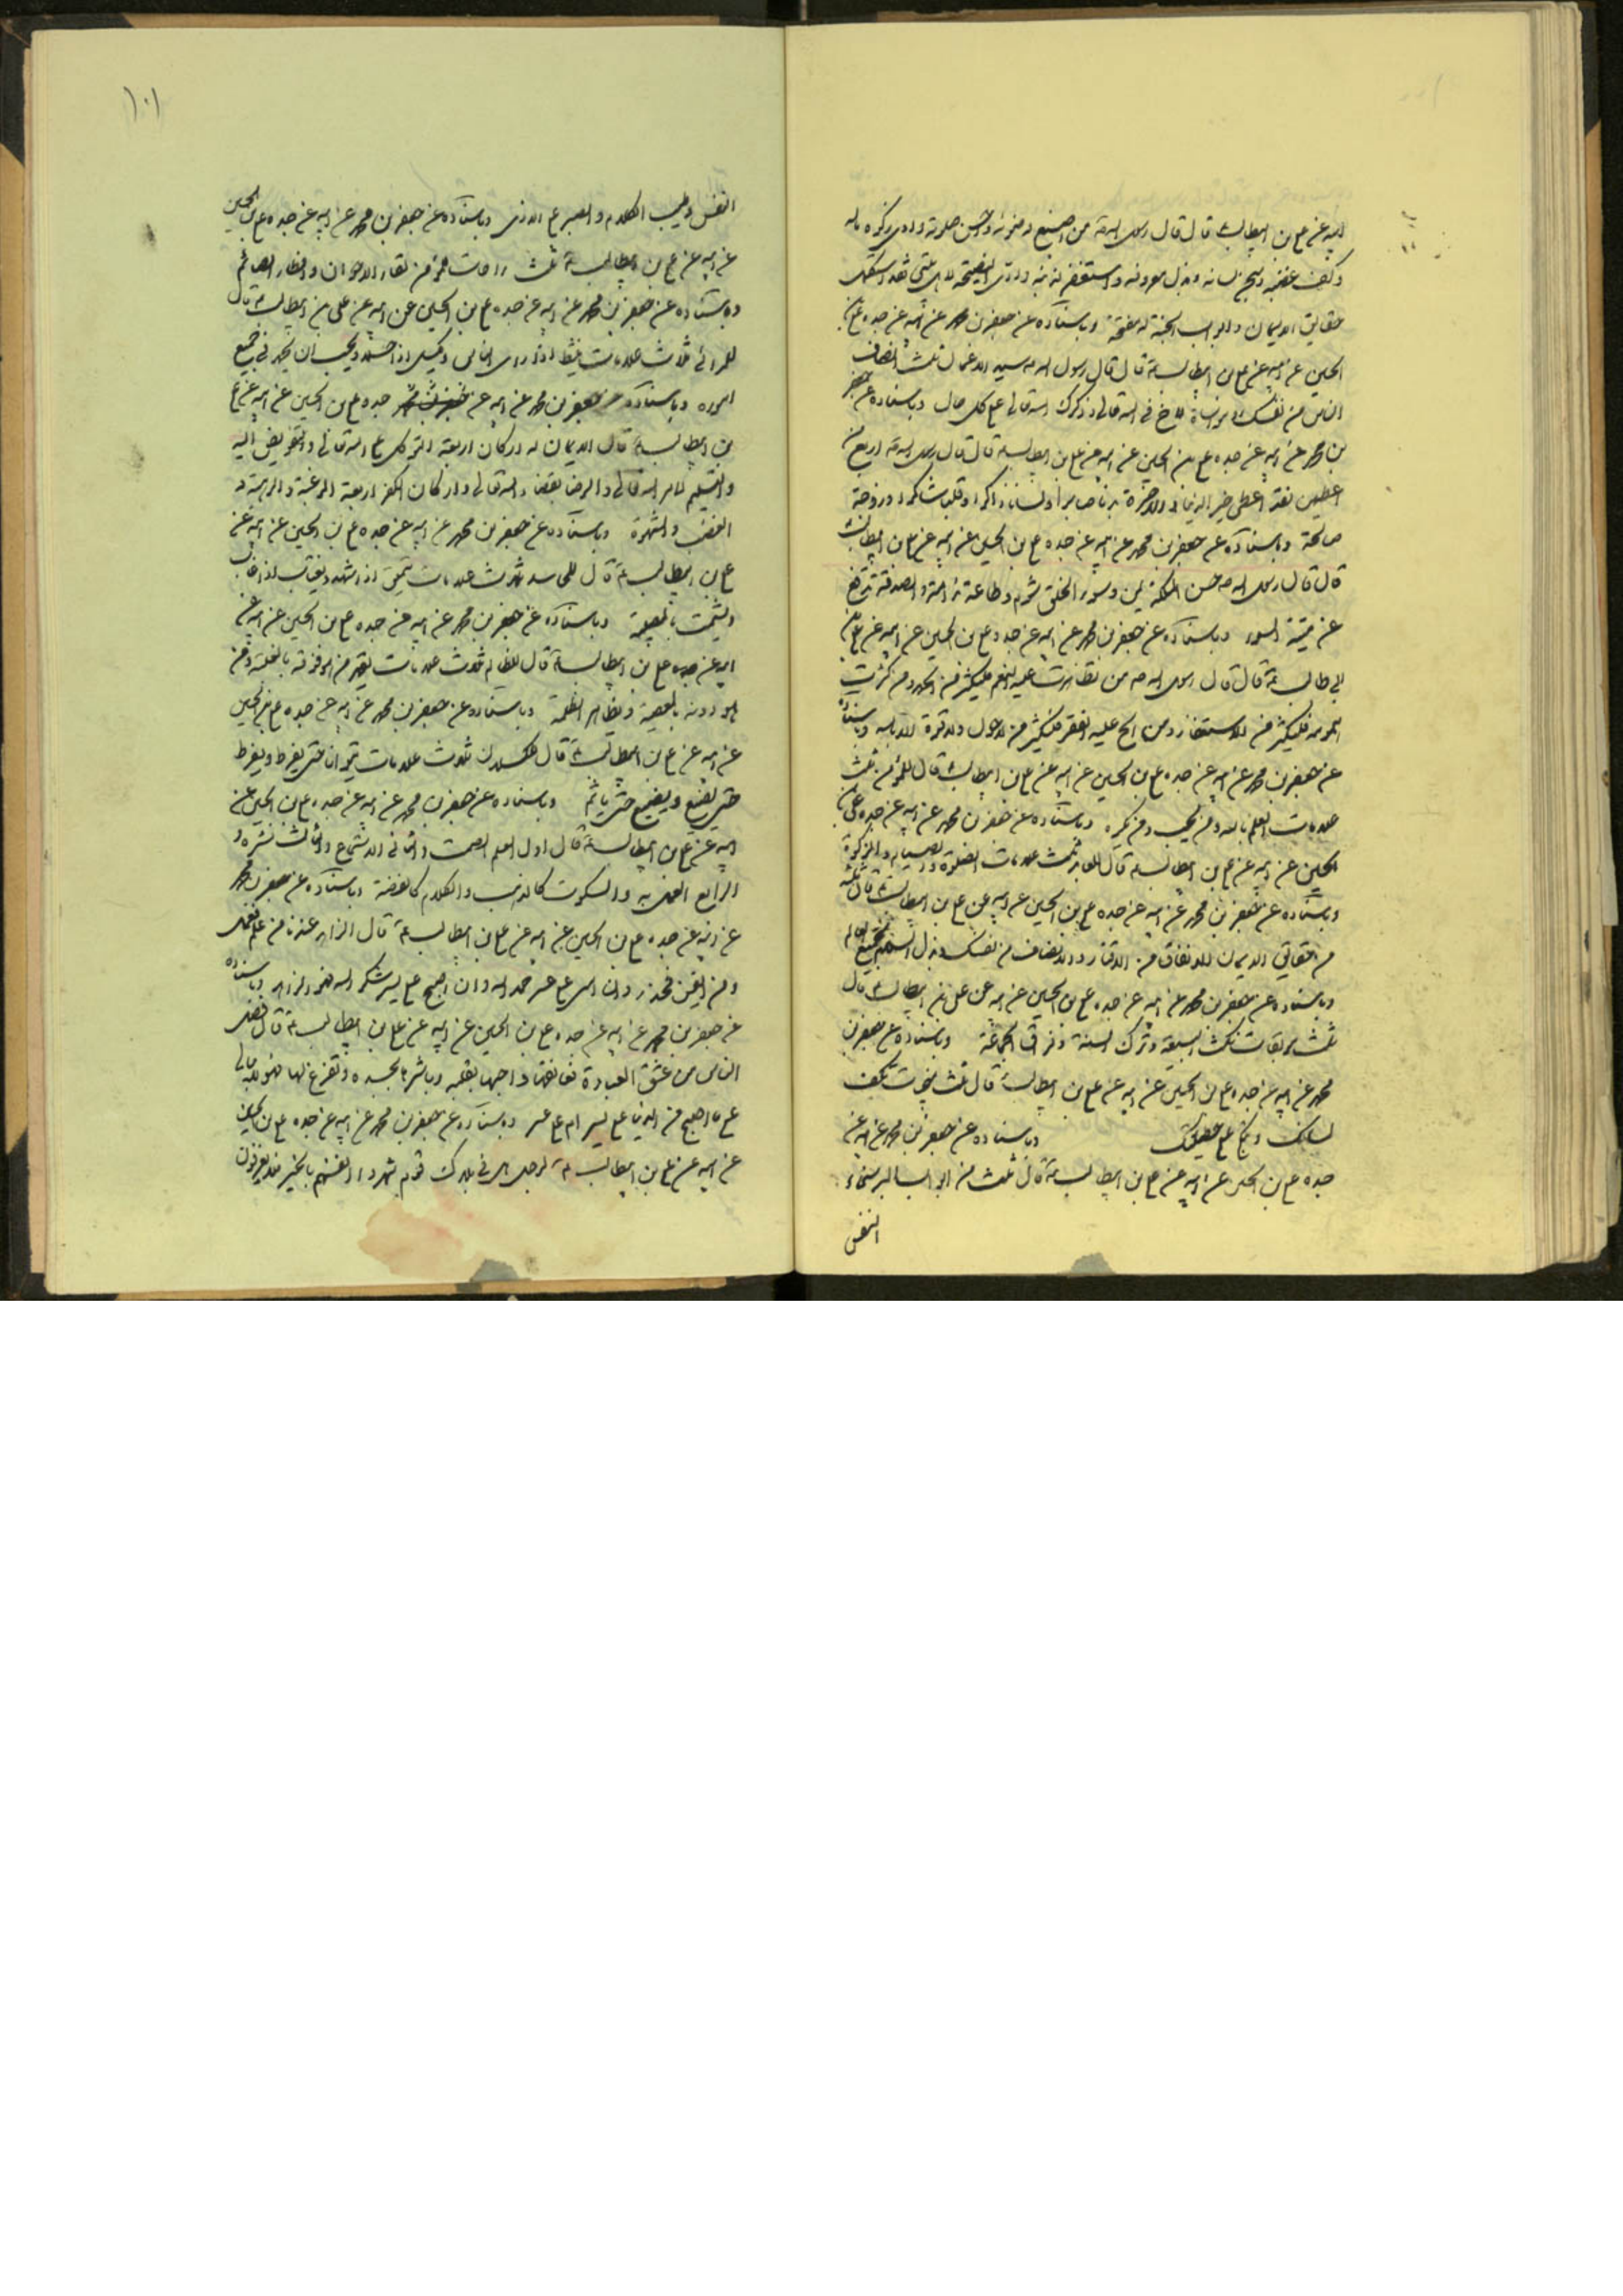 ابيه عن علي بن ابيطالب ع قال قال رسول الله ص من اصبغ وضوئه واحسن صلوته وادى زكوة ماله
وكف غضبه وسجن لسانه وبذل معروفه واستغفر لذنبه وادى النصيحة لاهل بيتى فقد استكمل
حقايق الايمان وابواب الجنة له مفتحة وباسناده عن جعفر بن محمد عن ابيه عن جده علي بن
الحسين عن ابيه عن علي بن ابيطالب ع قال قال رسول الله ص سيد الاعمال ثلث انصاف
الناس من نفسك ومواساة الاخ في الله تعالى وذكرك الله تعالى على كل حال وباسناده عن جعفر
بن محمد عن ابيه عن جده علي بن الحسين عن ابيه عن علي بن ابيطالب ع قال قال رسول الله ص اربع من
اعطيهن فقد اعطى خير الدنيا والاخرة بدنا صابرا ولسانا ذاكرا وقلبا شاكرا وزوجة
صالحة وباسناده عن جعفر بن محمد عن ابيه عن جده علي بن الحسين عن ابيه عن علي بن ابيطالب ع
قال قال رسول الله ص حسن الملكة يمن وسوء الخلق شوم وطاعة المرأة ندامة والصدقة تدفع
عن ميتة السوء وباسناده عن جعفر بن محمد عن ابيه عن جده علي بن الحسين عن ابيه عن علي بن
ابي طالب ع قال قال رسول الله ص من تظاهرت عليه النعم فليكثر من الحمد ومن كثرت
همومه فليكثر من الاستغفار ومن الح عليه الفقر فليكثر من لا حول ولا قوة الا بالله وباسناده
عن جعفر بن محمد عن ابيه عن جده علي بن الحسين عن ابيه عن علي بن ابيطالب ع قال للمؤمن ثلث
علامات العلم بالله ومن يحب ومن يكره وباسناده عن جعفر بن محمد عن ابيه عن جده علي بن
الحسين عن ابيه عن علي بن ابيطالب ع قال للعابد ثلث علامات الصلوة والصيام والزكوة
وباسناده عن جعفر بن محمد عن ابيه عن جده علي بن الحسين عن ابيه عن علي بن ابيطالب ع قال ثلثة
من حقايق الايمان الانفاق من الاقتار والانصاف من نفسك وبذل السلام لجميع العالم
وباسناده عن جعفر بن محمد عن ابيه عن جده علي بن الحسين عن ابيه عن علي بن ابيطالب ع قال
ثلث موبقات نكث البيعة وترك السنة وفراق الجماعة وباسناده عن جعفر بن
محمد عن ابيه عن جده علي بن الحسين عن ابيه عن علي بن ابيطالب ع قال ثلث منجيات تكف
لسانك وتبكي على خطيئتك وباسناده عن جعفر بن محمد عن ابيه عن
جده علي بن الحسين عن ابيه عن علي بن ابيطالب ع قال ثلث من ابواب البر سخاء
النفس
١٠١
النفس وطيب الكلام والصبر على الاذى وباسناده عن جعفر بن محمد عن ابيه عن جده علي بن الحسين
عن ابيه عن علي بن ابيطالب ع ثلث راحات للمؤمن لقاء الاخوان وافطار الصائم
وباسناده عن جعفر بن محمد عن ابيه عن جده علي بن الحسين عن ابيه عن علي بن ابيطالب ع قال
للمرائى ثلاث علامات ينشط اذا راى الناس ويكسل اذا كان وحده ويحب ان يحمد في جميع
اموره وباسناده عن جعفر بن محمد عن ابيه عن جده علي بن الحسين عن ابيه عن علي
بن ابيطالب ع قال الايمان له اركان اربعة التوكل على الله تعالى والتفويض اليه
والتسليم لامر الله تعالى والرضا بقضاء الله تعالى واركان الكفر اربعة الرغبة والرهبة و
الغضب والشهوة وباسناده عن جعفر بن محمد عن ابيه عن جده علي بن الحسين عن ابيه عن
علي بن ابيطالب ع قال للحاسد ثلاث علامات يتملق اذا شهد ويغتاب اذا غاب
ويشمت بالمصيبة وباسناده عن جعفر بن محمد عن ابيه عن جده علي بن الحسين عن ابيه عن
ابيه عن جده علي بن ابيطالب ع قال للظالم ثلاث علامات يقهر من هو فوقه بالغلبة ومن
هو دونه بالمعصية ويظاهر الظلمة وباسناده عن جعفر بن محمد عن ابيه عن جده علي بن الحسين
عن ابيه عن علي بن ابيطالب ع قال للكسلان ثلاث علامات يتوانى حتى يفرط ويفرط
حتى يضيع ويضيع حتى ياثم وباسناده عن جعفر بن محمد عن ابيه عن جده علي بن الحسين عن
ابيه عن علي بن ابيطالب ع قال اول العلم الصمت والثاني الاستماع والثالث نشره و
الرابع العمل به والسكوت كالذهب والكلام كالفضة وباسناده عن جعفر بن محمد
عن ابيه عن جده علي بن الحسين عن ابيه عن علي بن ابيطالب ع قال الزاهد عندنا من علم فعمل
ومن ايقن فحذر وان امسى على عسر حمد الله وان اصبح على يسر شكر الله فهو الزاهد وباسناده
عن جعفر بن محمد عن ابيه عن جده علي بن الحسين عن ابيه عن علي بن ابيطالب ع قال افضل
الناس من عشق العبادة فعانقها واحبها بقلبه وباشرها بجسده وتفرغ لها فهو لا يبالي
على ما اصبح من الدنيا على يسر ام على عسر وباسناده عن جعفر بن محمد عن ابيه عن جده علي بن الحسين
عن ابيه عن علي بن ابيطالب ع لرجل هل في بلادك قوم شهروا انفسهم بالخير فلا يعرفون